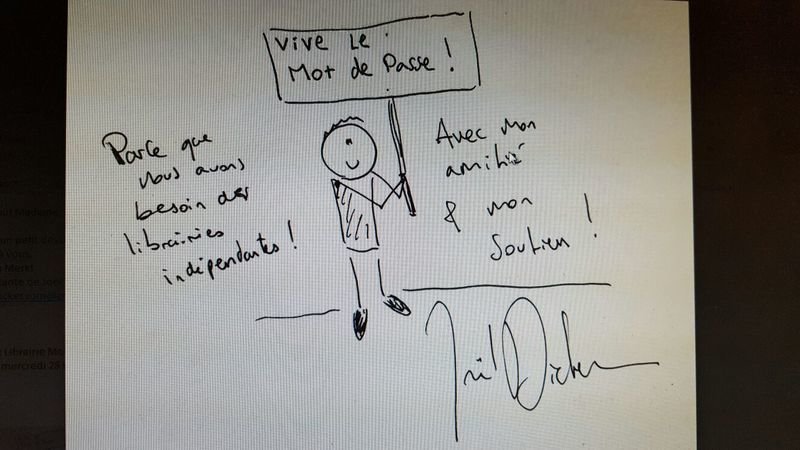 Vive Le
Mot de Passe !
Parce que
nous avons
besoin des
librairies
indépendantes !
Avec mon
amitié
& mon
Soutien !
Joël Dicker
Librairie
mercredi 28